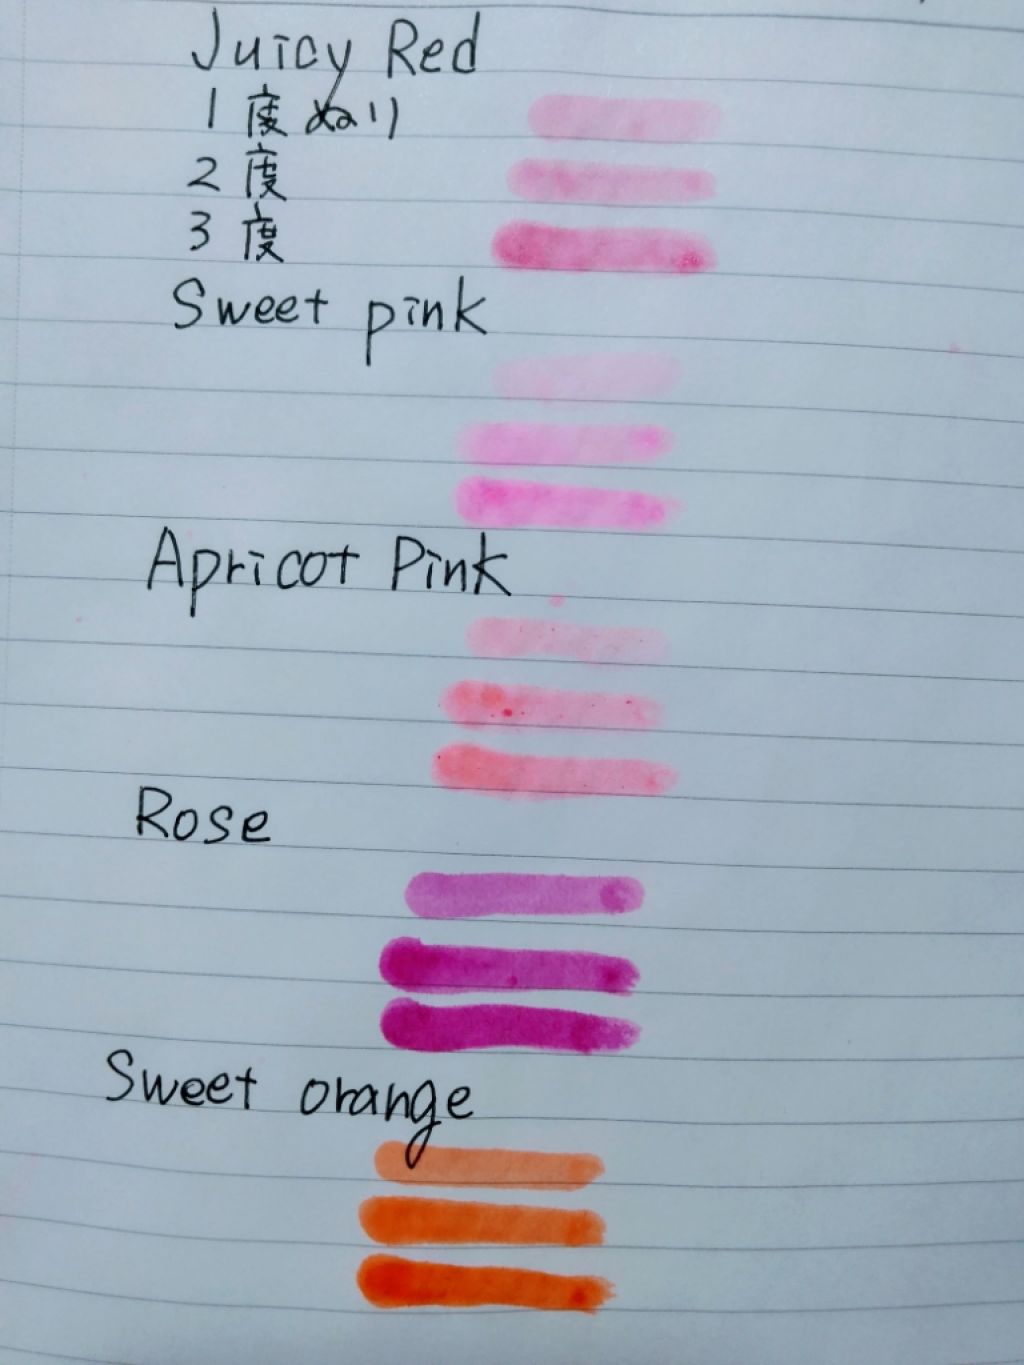 Juicy Red
1度ぬり
2度
3度
Sweet pink
Apricot Pink
Rose
Sweet orange